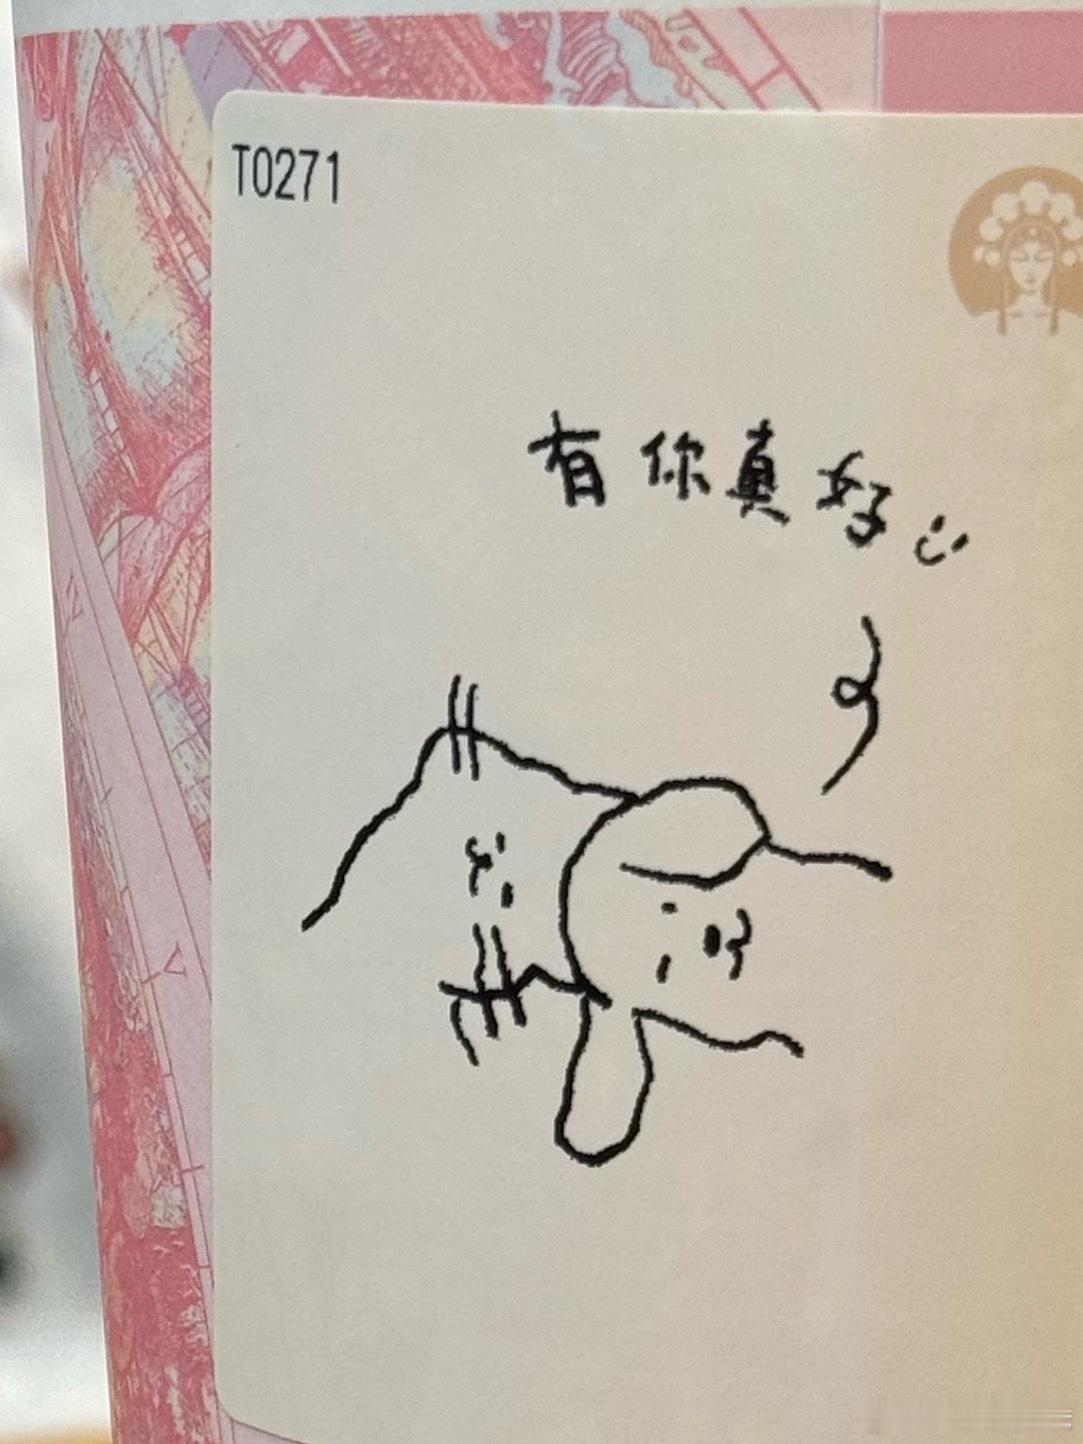 T0271
有你真好